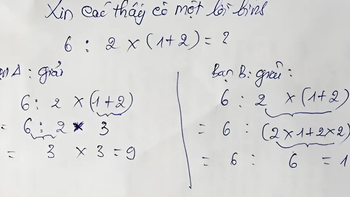 Xin các thầy cô một lời bình
6 : 2 x (1+2) = ?
bạn A: giải
6 : 2 x (1+2)
= 6 : 2 x 3
= 3 x 3 = 9
Bạn B: giải :
6 : 2 x (1+2)
= 6 : (2x1+2x2)
= 6 : 6 = 1